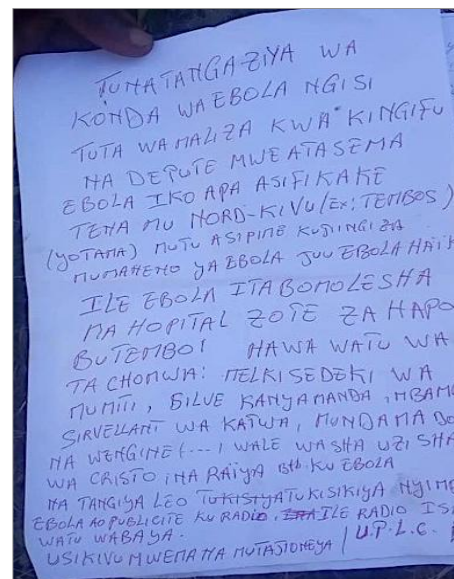 TUNATANGAZIYA WA
KONDA WA EBOLA NGISI
TUTA WAMALIZA KWA KINGIFU
NA DEPUTE MWE ATASEMA
EBOLA IKO APA ASIFIKAKE
TENA MU NORD-KIVU (Ex: TEMBOS)
(YOTAMA) MUTU ASIPIME KUJIINGIZA
MUMANENO YA EBOLA JUU EBOLA
ILE EBOLA ITABOMOLESHA
MA HOPITAL ZOTE ZA HAPO
BUTEMBO! HAWA WATU WA
TA CHOMWA: MELKISEDEKI WA
MUMITI, SILUE KANYAMANDA,
SIRVELLANT WA KATWA, MUNDAMA
NA WENGINE (...) WALE WASHA UZISHA
WA CRISTO INA RAIYA KU EBOLA
NA TANGIYA LEO TUKISIKIYA
EBOLA AO PUBLICITE KU RADIO, ILE RADIO
WATU WABAYA.
USIKIVU MWEMA NA MUTAJIONEYA / U.P.L.C.